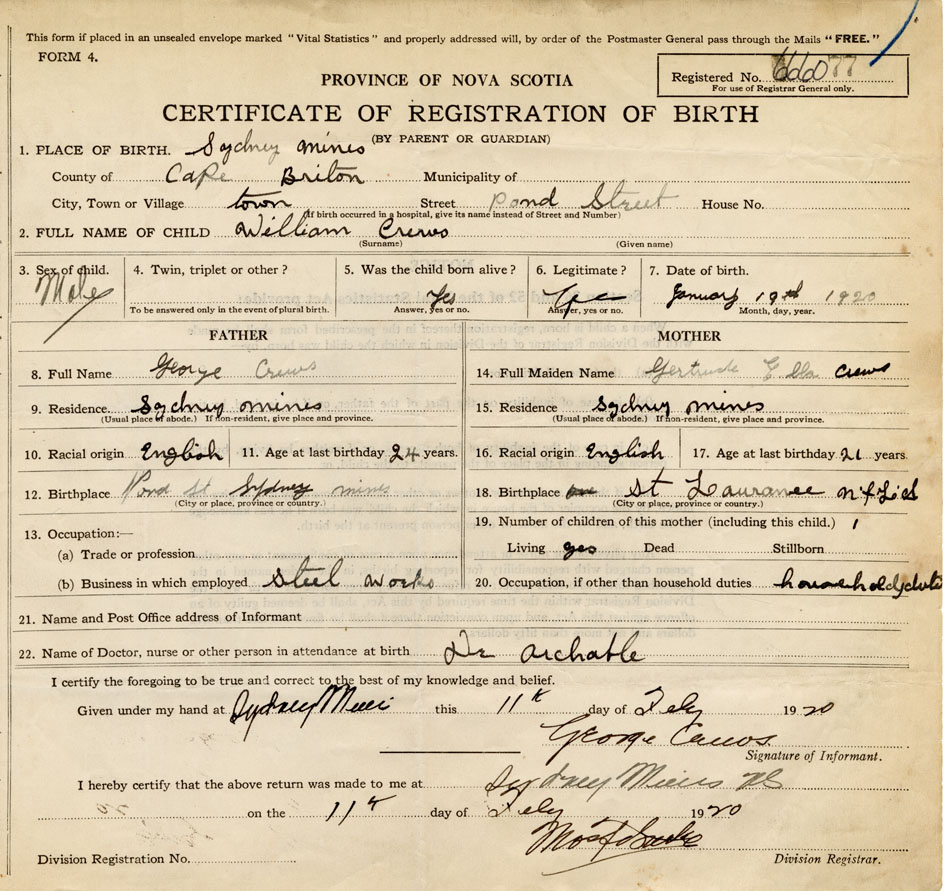 This form if placed in an unsealed envelope marked "Vital Statistics" and properly addressed will, by order of the Postmaster General pass through the Mails "FREE."
FORM 4.
PROVINCE OF NOVA SCOTIA
Registered No. 666077
For use of Registrar General only.
CERTIFICATE OF REGISTRATION OF BIRTH
(BY PARENT OR GUARDIAN)
1. PLACE OF BIRTH. Sydney mines
County of Cape Briton Municipality of
City, Town or Village town Street Pond Street House No.
(If birth occurred in a hospital, give its name instead of Street and Number)
2. FULL NAME OF CHILD William Crews
(Surname) (Given name)
3. Sex of child. 4. Twin, triplet or other? 5. Was the child born alive? 6. Legitimate? 7. Date of birth.
Male Yes January 19th 1920
To be answered only in the event of plural birth. Answer, yes or no. Answer, yes or no. Month, day, year.
FATHER MOTHER
8. Full Name George Crews 14. Full Maiden Name Gertrude Ella Crews
9. Residence. Sydney mines 15. Residence Sydney mines
(Usual place of abode.) If non-resident, give place and province. (Usual place of abode.) If non-resident, give place and province.
10. Racial origin English 11. Age at last birthday 24 years. 16. Racial origin English 17. Age at last birthday 21 years.
12. Birthplace Pond St Sydney mines 18. Birthplace St Lauranee nfld
(City or place, province or country.) (City or place, province or country.)
19. Number of children of this mother (including this child.) 1
13. Occupation:—
(a) Trade or profession Living yes Dead Stillborn
(b) Business in which employed Steel Works 20. Occupation, if other than household duties household duties
21. Name and Post Office address of Informant
22. Name of Doctor, nurse or other person in attendance at birth Dr Archable
I certify the foregoing to be true and correct to the best of my knowledge and belief.
Given under my hand at Sydney Mines this 11th day of Feby 1920
George Crews
Signature of Informant.
I hereby certify that the above return was made to me at Sydney Mines NS
on the 11th day of Feby 1920
Division Registration No. Division Registrar.